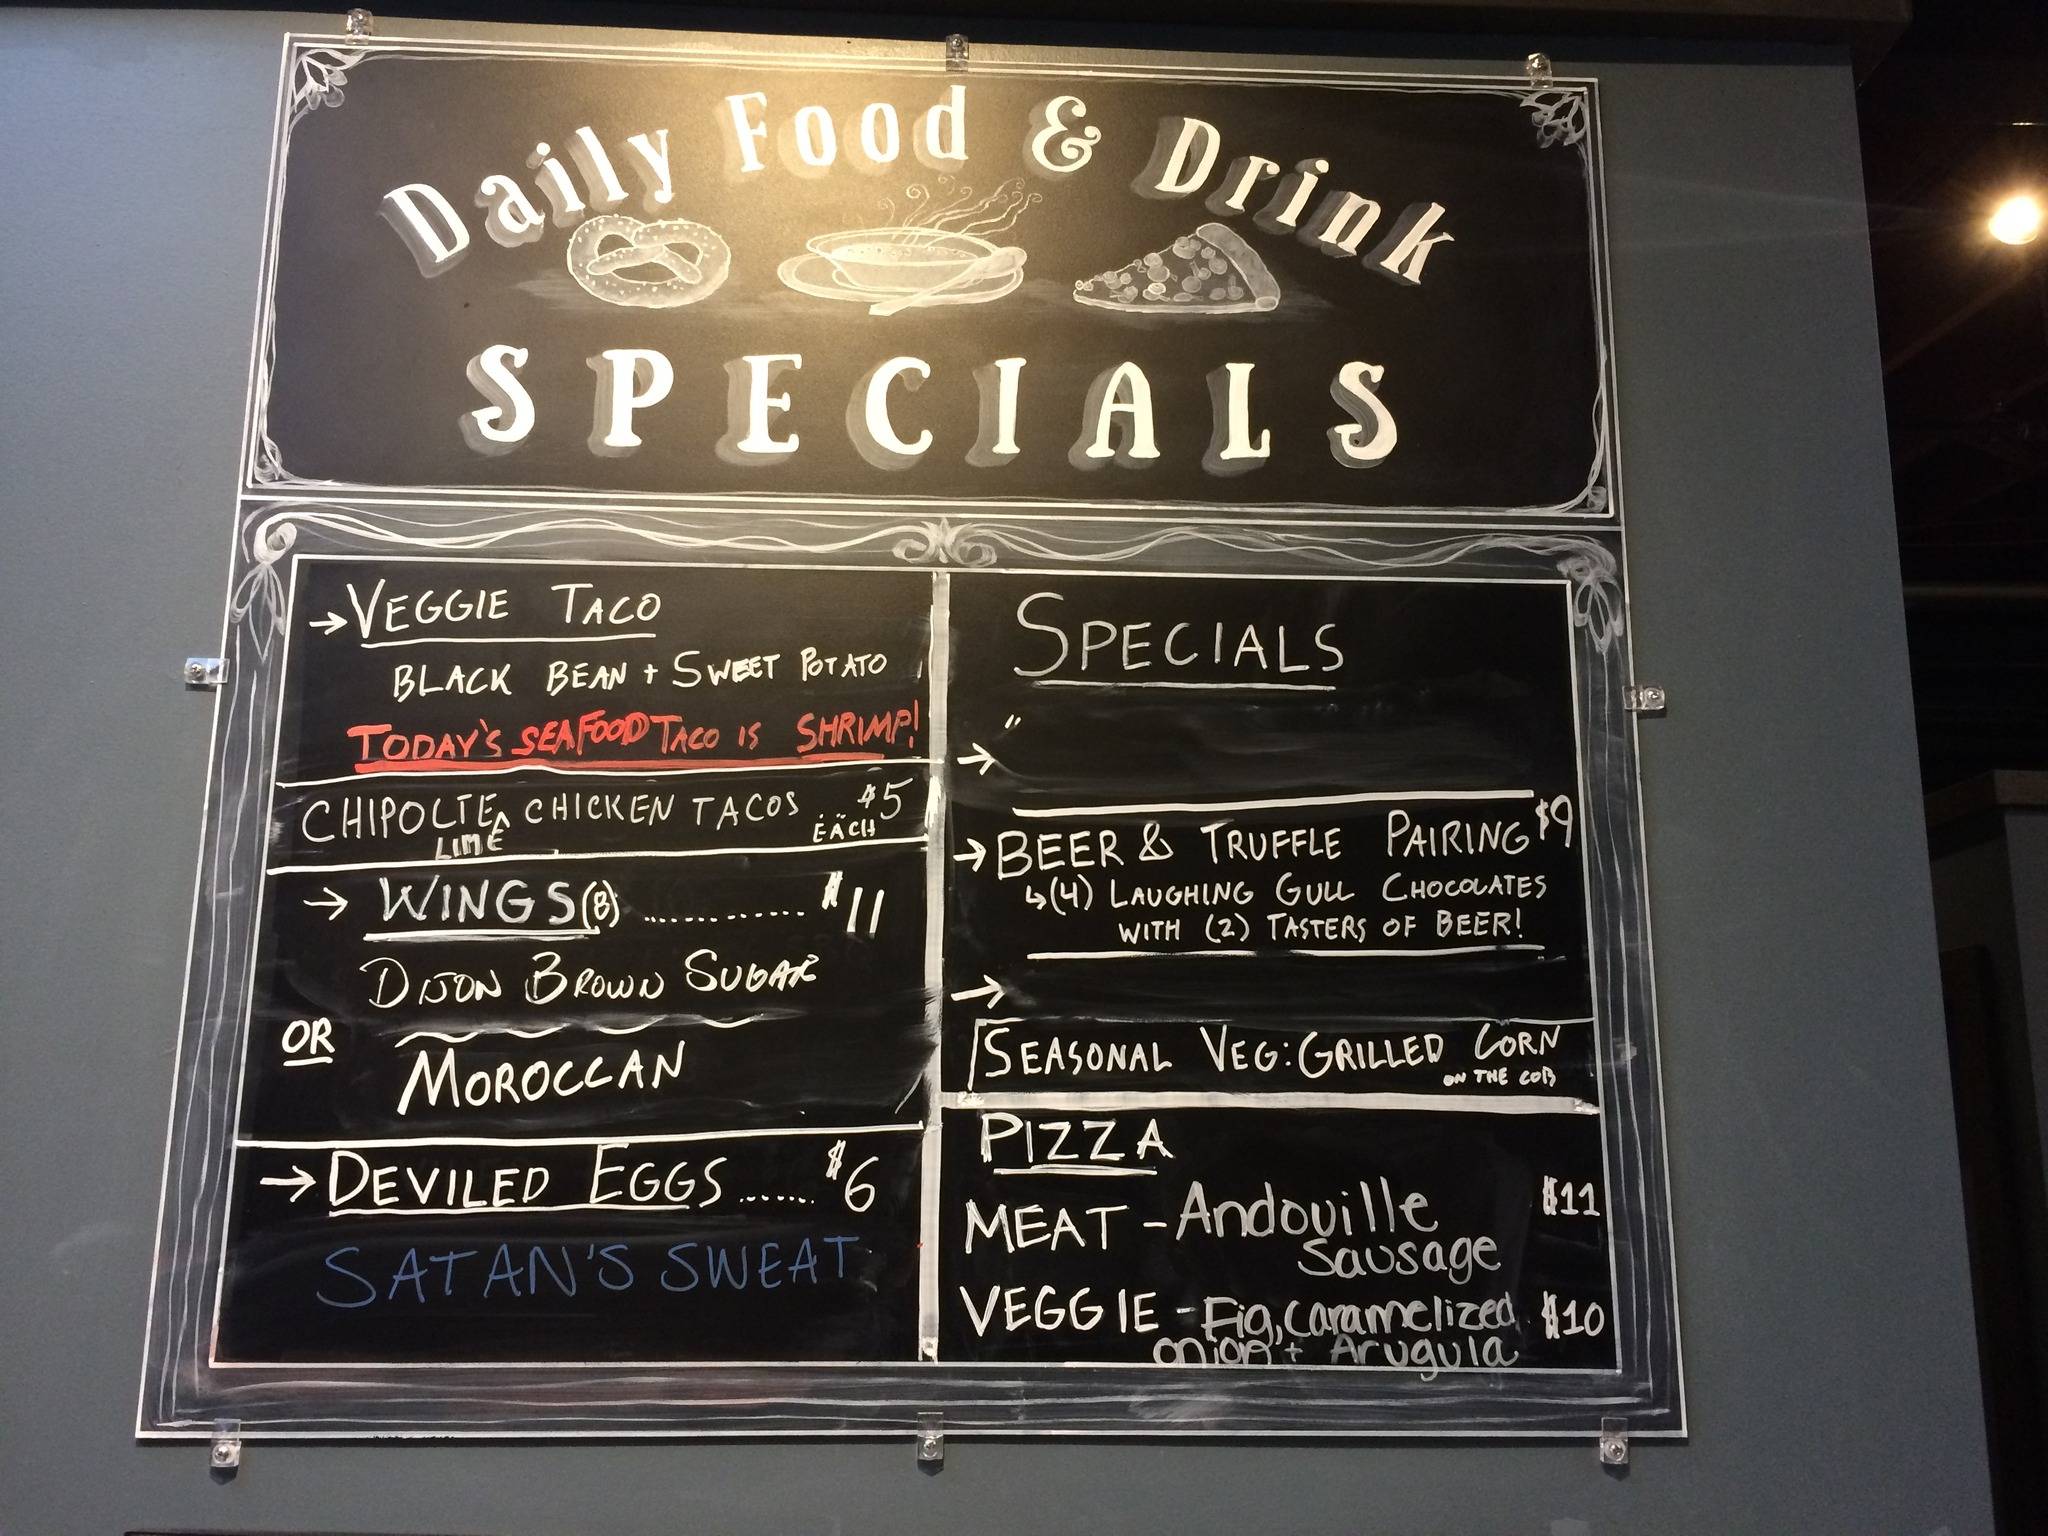 Daily Food & Drink
SPECIALS
→VEGGIE TACO
BLACK BEAN + SWEET POTATO
TODAY'S SEAFOOD TACO IS SHRIMP!
CHIPOLTE ^ CHICKEN TACOS $5
LIME EACH
→ WINGS (8) ............ $11
DIJON BROWN SUGAR
OR
MOROCCAN
→ DEVILED EGGS ....... $6
SATAN'S SWEAT
SPECIALS
"
→
→ BEER & TRUFFLE PAIRING $9
↳(4) LAUGHING GULL CHOCOLATES
WITH (2) TASTERS OF BEER!
→
SEASONAL VEG: GRILLED CORN
ON THE COB
PIZZA
MEAT - Andouille $11
Sausage
VEGGIE - Fig, caramelized $10
onion + Arugula